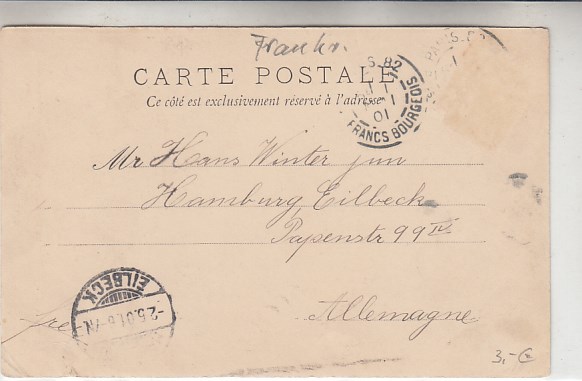 Frankr.
CARTE POSTALE
Ce côté est exclusivement réservé à l'adresse
S. 82
1
01
FRANCS BOURGEOIS
PARIS.
Mr Hans Winter jun
Hamburg Eilbeck
Papenstr 99 IV.
Allemagne
EILBECK
-2.5.01.6-7N.
3,- €